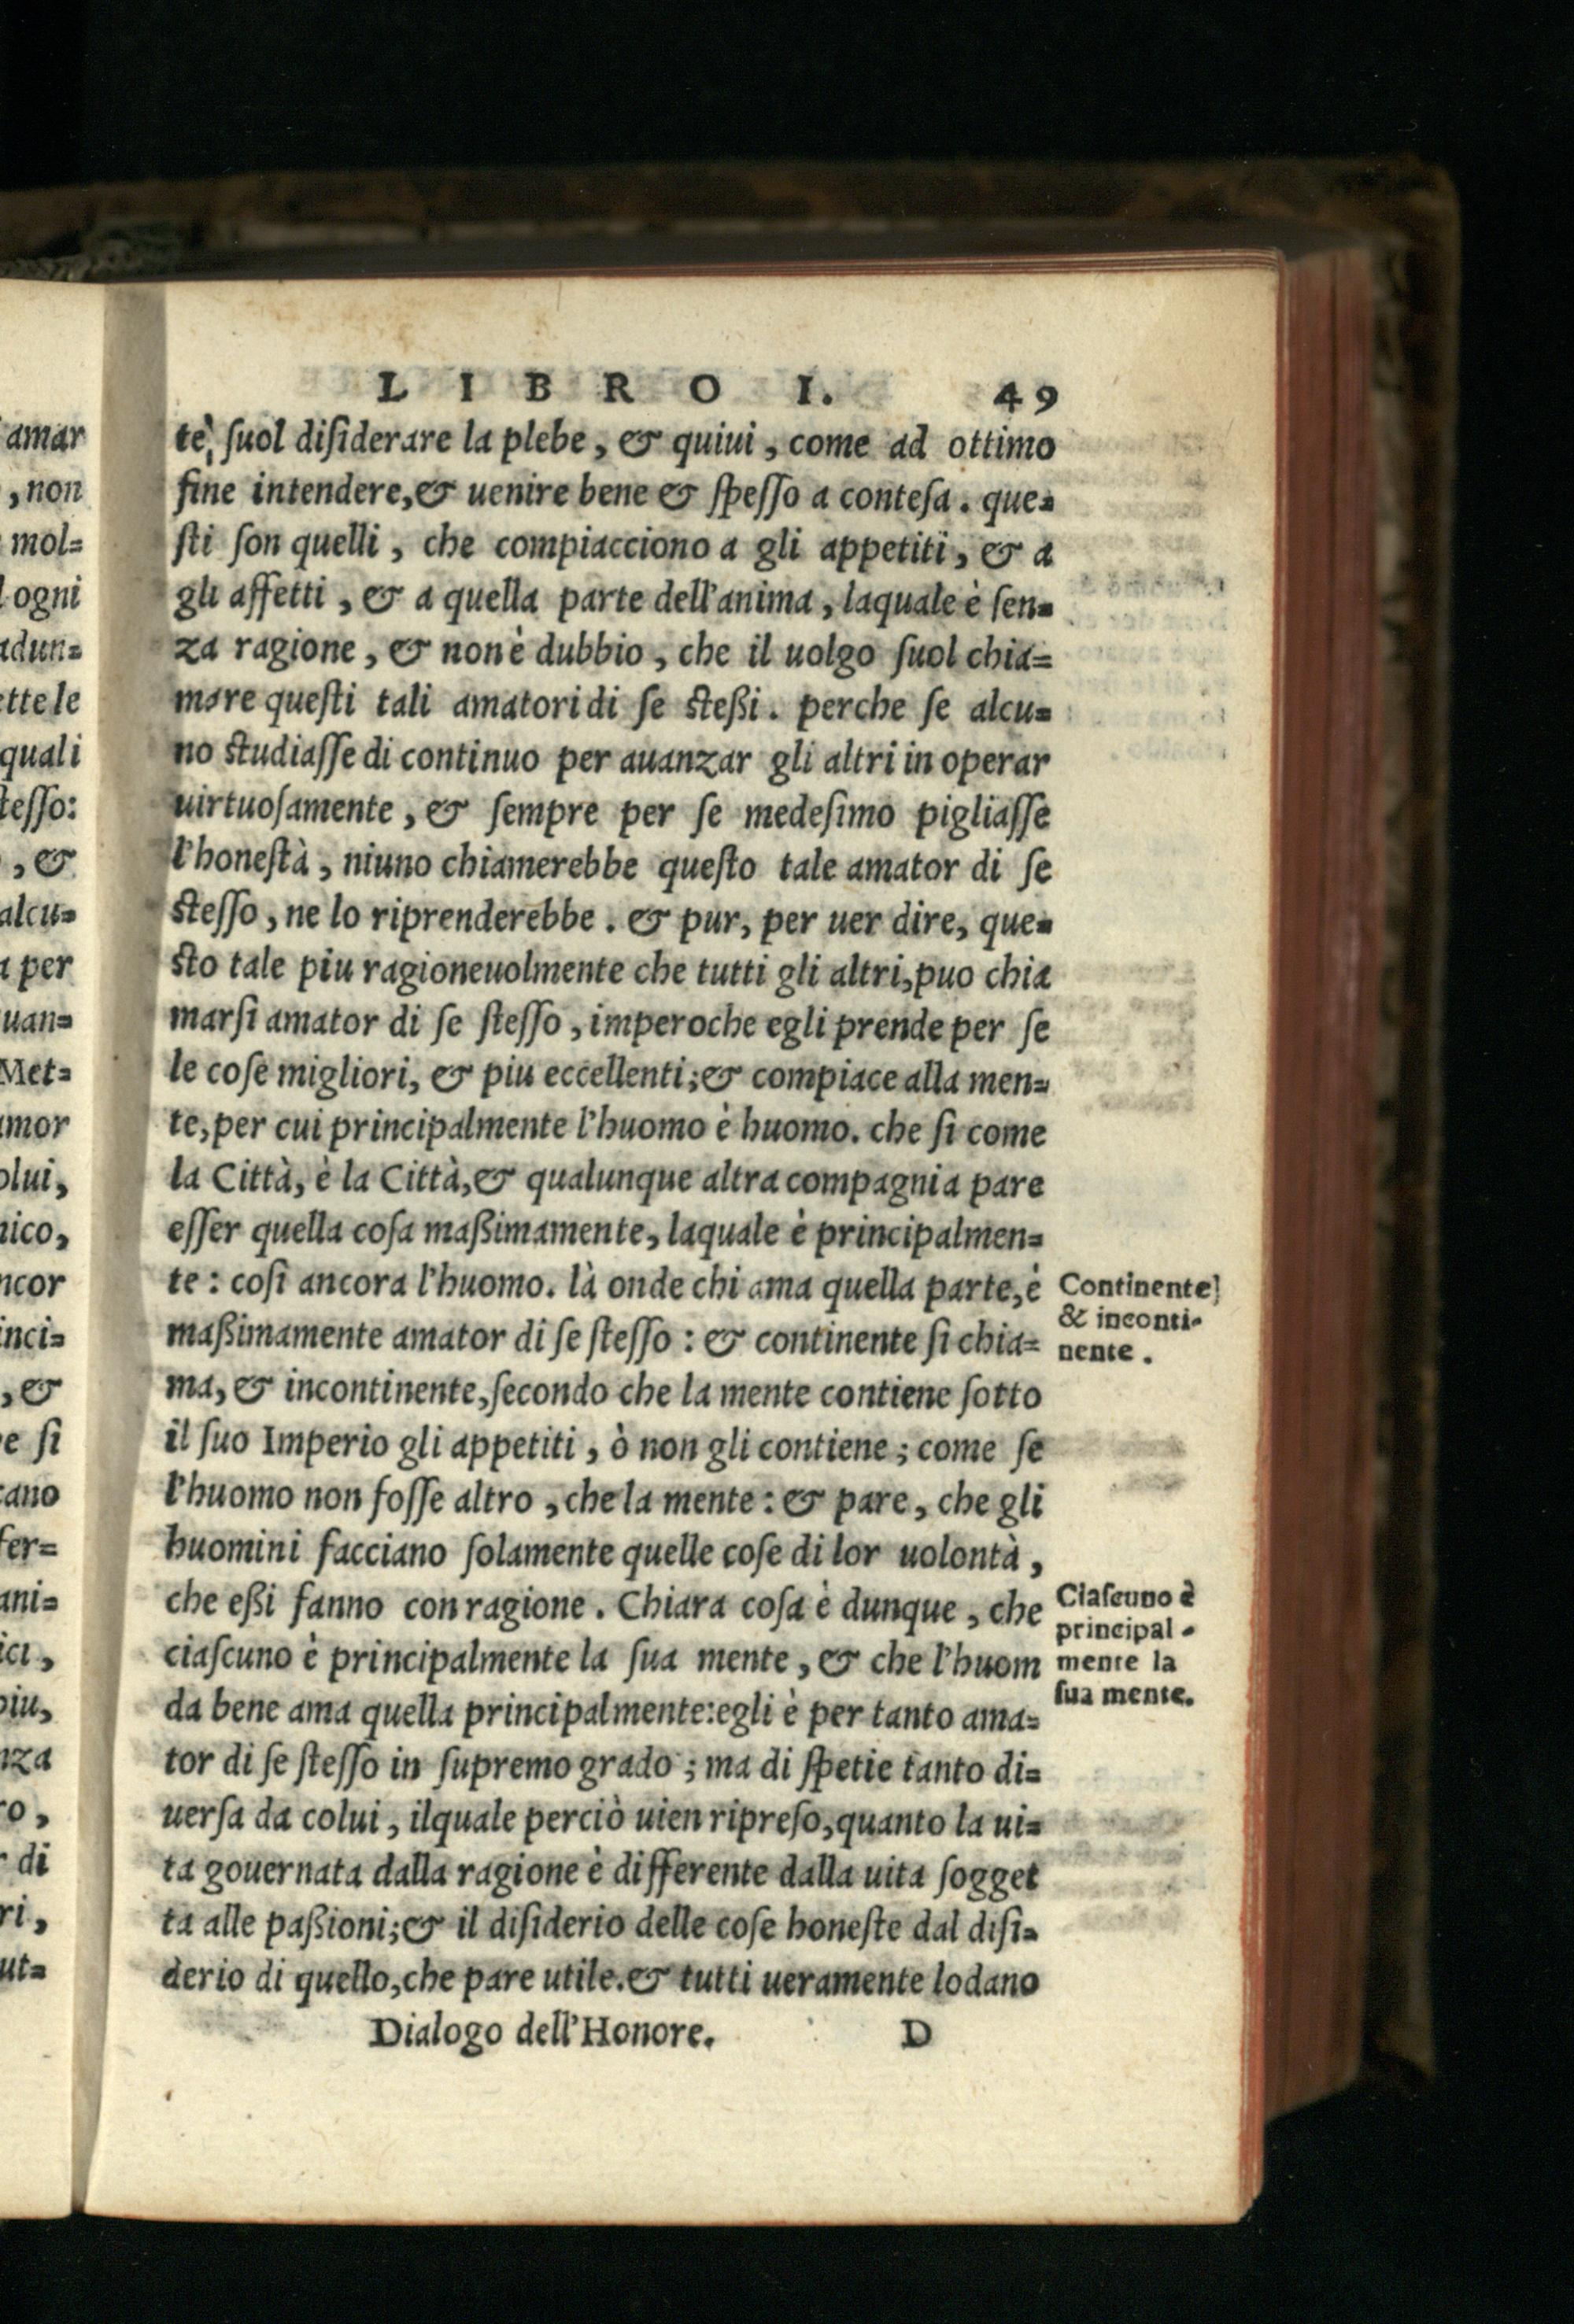 LIBRO I. 49
te, ſuol diſiderare la plebe, & quiui, come ad ottimo
fine intendere,& uenire bene & ſpeſſo a conteſa. que=
ſti ſon quelli, che compiacciono a gli appetiti, & a
gli affetti, & a quella parte dell'anima, laquale è ſen=
za ragione, & non è dubbio, che il uolgo ſuol chia=
mare queſti tali amatori di ſe ſteßi. perche ſe alcu=
no ſtudiaſſe di continuo per auanzar gli altri in operar
uirtuoſamente, & ſempre per ſe medeſimo pigliaſſe
l'honeſtà, niuno chiamerebbe queſto tale amator di ſe
ſteſſo, ne lo riprenderebbe. & pur, per uer dire, que=
ſto tale piu ragioneuolmente che tutti gli altri,puo chia
marſi amator di ſe ſteſſo, imperoche egli prende per ſe
le coſe migliori, & piu eccellenti;& compiace alla men=
te,per cui principalmente l'huomo è huomo. che ſi come
la Città, è la Città,& qualunque altra compagnia pare
eſſer quella coſa maßimamente, laquale è principalmen=
te: coſi ancora l'huomo. là onde chi ama quella parte,è
maßimamente amator di ſe ſteſſo: & continente ſi chia=
ma, & incontinente,ſecondo che la mente contiene ſotto
il ſuo Imperio gli appetiti, ò non gli contiene; come ſe
l'huomo non foſſe altro, che la mente: & pare, che gli
huomini facciano ſolamente quelle coſe di lor uolontà,
che eßi fanno con ragione. Chiara coſa è dunque, che
ciaſcuno è principalmente la ſua mente, & che l'huom
da bene ama quella principalmente:egli è per tanto ama=
tor di ſe ſteſſo in ſupremo grado; ma di ſpetie tanto di=
uerſa da colui, ilquale perciò uien ripreſo,quanto la ui=
ta gouernata dalla ragione è differente dalla uita ſogget
ta alle paßioni;& il diſiderio delle coſe honeſte dal diſi=
derio di quello,che pare utile.& tutti ueramente lodano
Dialogo dell'Honore. D
Continente
& inconti-
nente.
Ciaſcuno è
principal-
mente la
ſua mente.
amar
, non
mol=
ogni
adun=
ette le
quali
teſſo:
, &
alcu=
per
uan=
Met=
amor
olui,
nico,
ncor
inci=
, &
e ſi
cano
fer=
ani=
ici,
piu,
nza
ro,
di
ri,
ut=